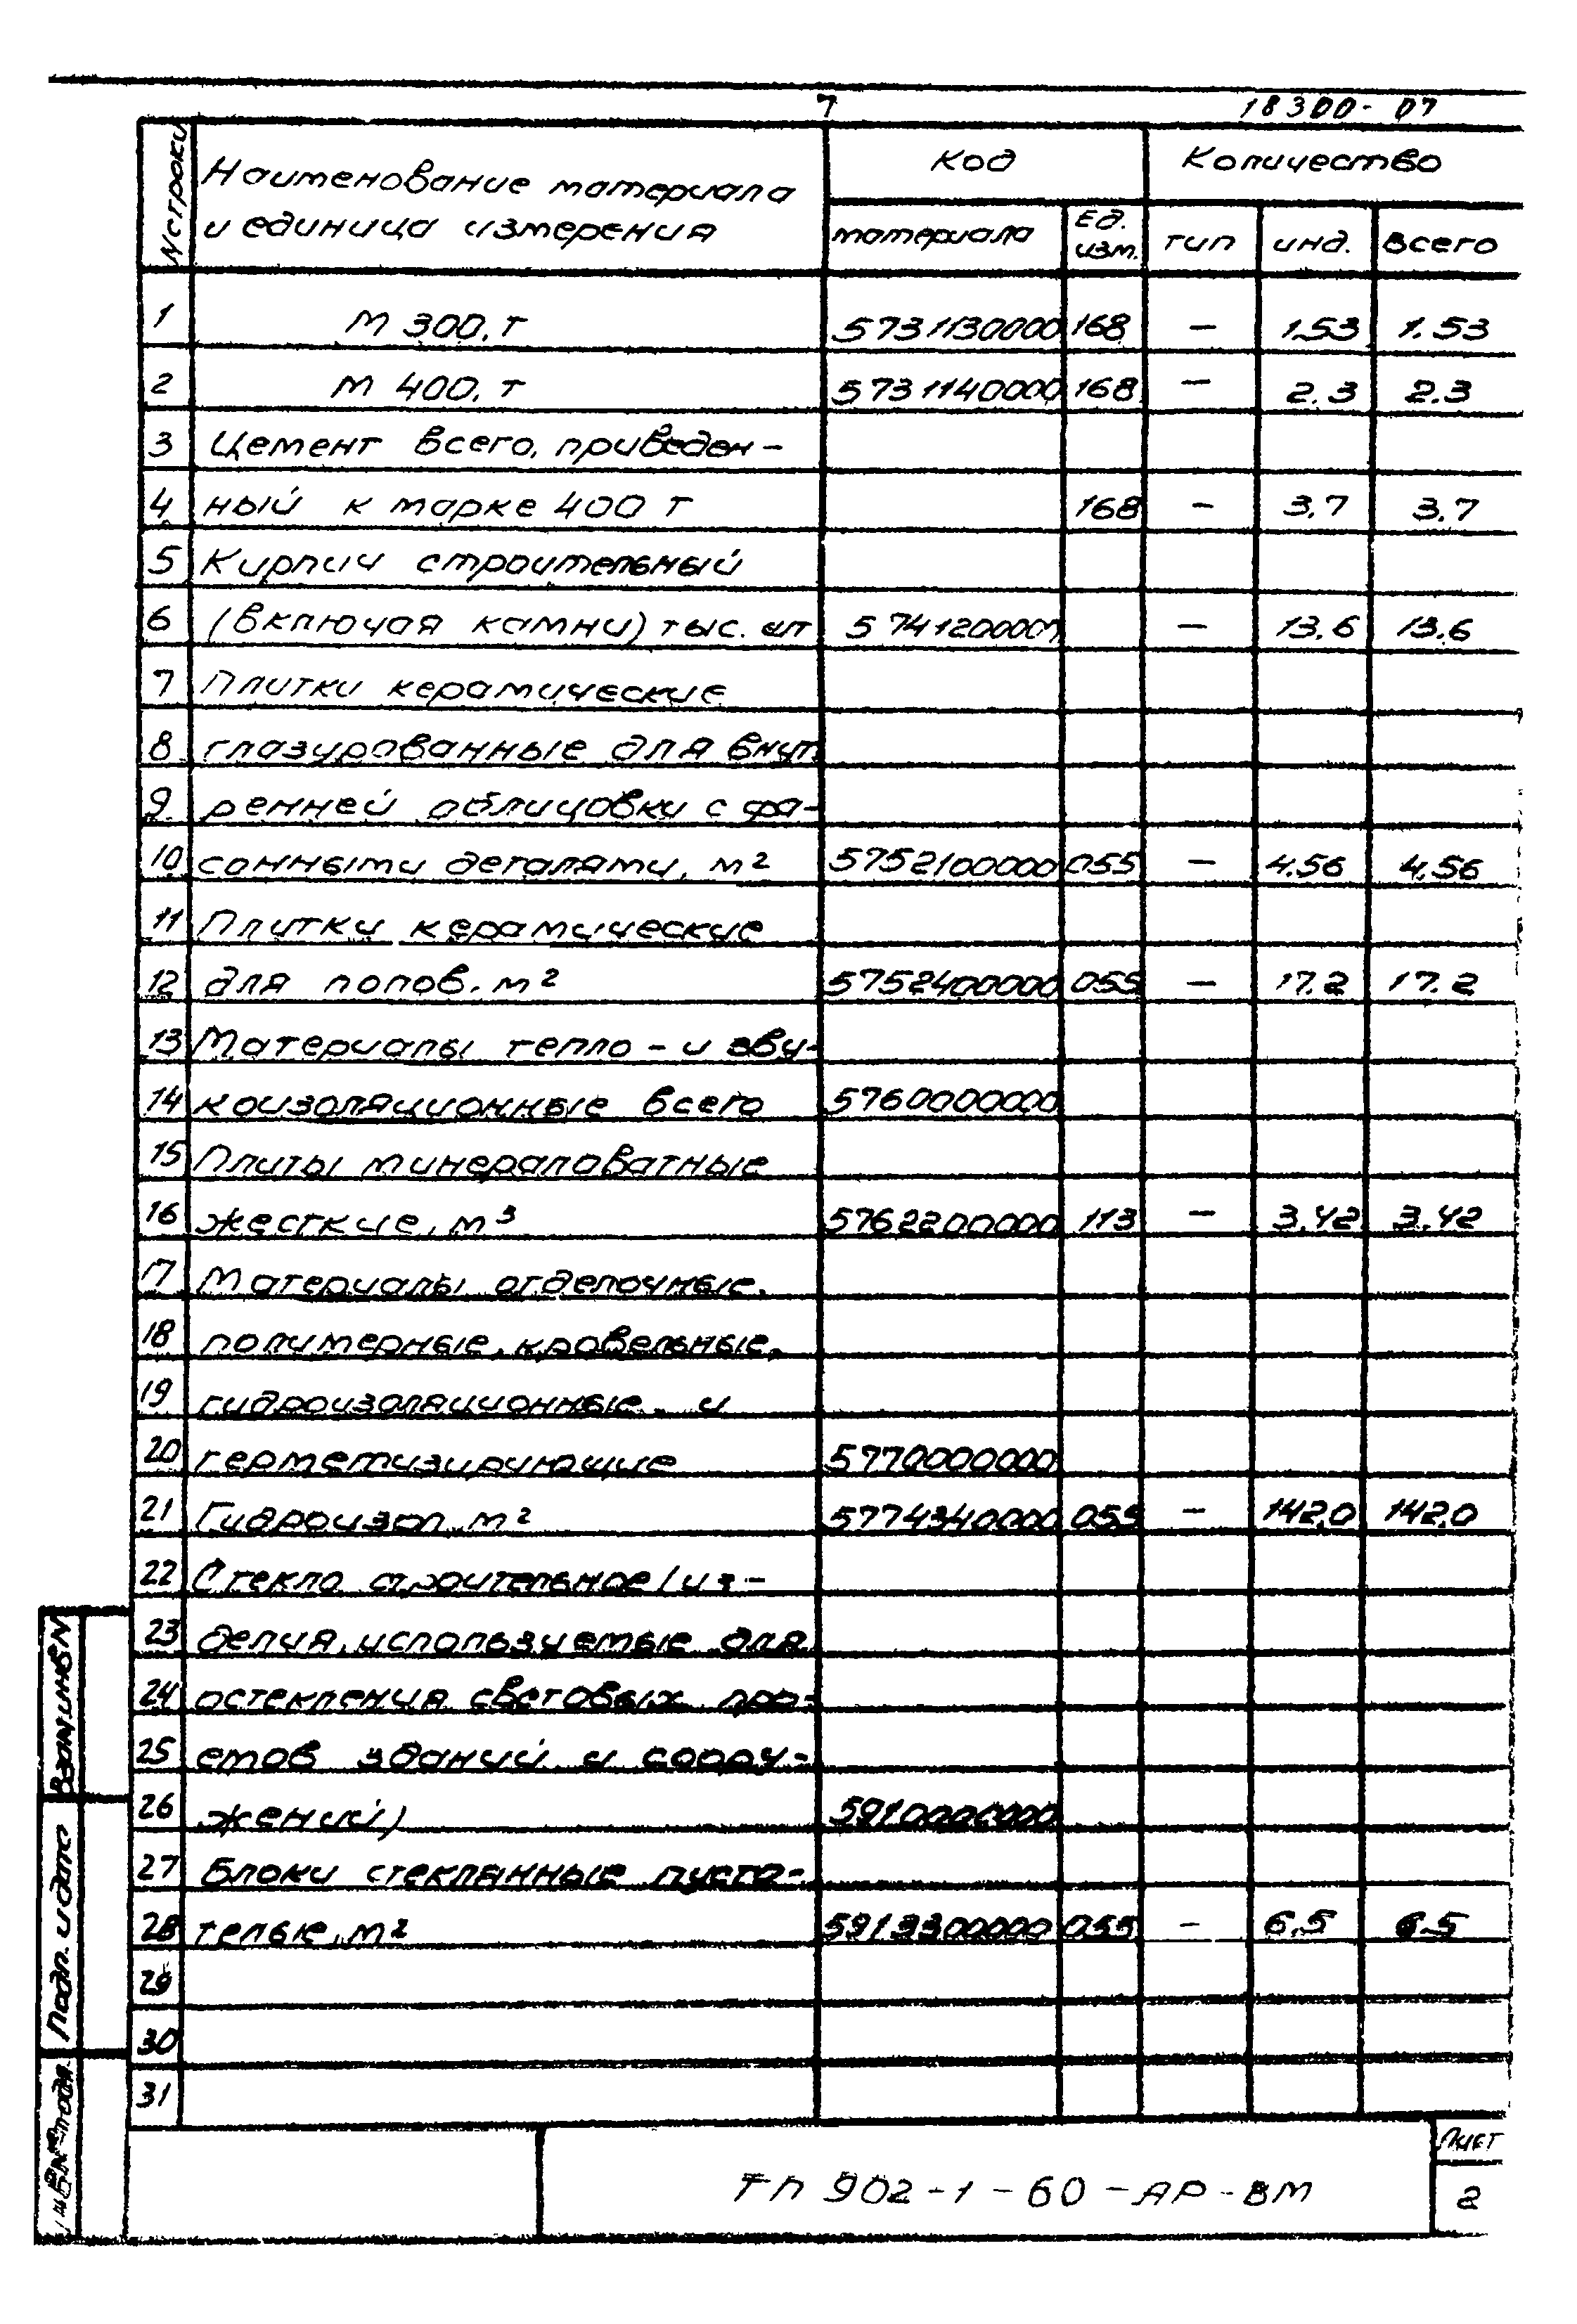 7
18300-07
N строки
Наименование материала
и единица измерения
Код
материала
Ед.
изм.
Количество
тип
инд.
Всего
1 М 300, т 5731130000 168 — 1.53 1.53
2 М 400, т 5731140000 168 — 2.3 2.3
3 Цемент всего, приведен-
4 ный к марке 400 т 168 — 3,7 3,7
5 Кирпич строительный
6 (включая камни) тыс. шт 5741200000 — 13,6 13,6
7 Плитки керамические
8 глазурованные для внут-
9 ренней облицовки с фа-
10 сонными деталями, м² 5752100000 055 — 4.56 4.56
11 Плитки керамические
12 для полов, м² 5752400000 055 — 17.2 17.2
13 Материалы тепло- и зву-
14 коизоляционные всего 5760000000
15 Плиты минераловатные
16 жесткие, м³ 5762200000 113 — 3,42 3,42
17 Материалы отделочные,
18 полимерные, кровельные,
19 гидроизоляционные и
20 герметизирующие 5770000000
21 Гидроизол, м² 5774340000 055 — 142,0 142,0
22 Стекло строительное (из-
23 делия, используемые для
24 остекления световых про-
25 емов зданий и соору-
26 жений) 5910000000
27 Блоки стеклянные пусто-
28 телые, м² 5913300000 055 — 6,5 6.5
29
30
31
Взам.инв N
Подп. и дата
Инв № подл.
ТП 902-1-60-АР-ВМ
Лист
2